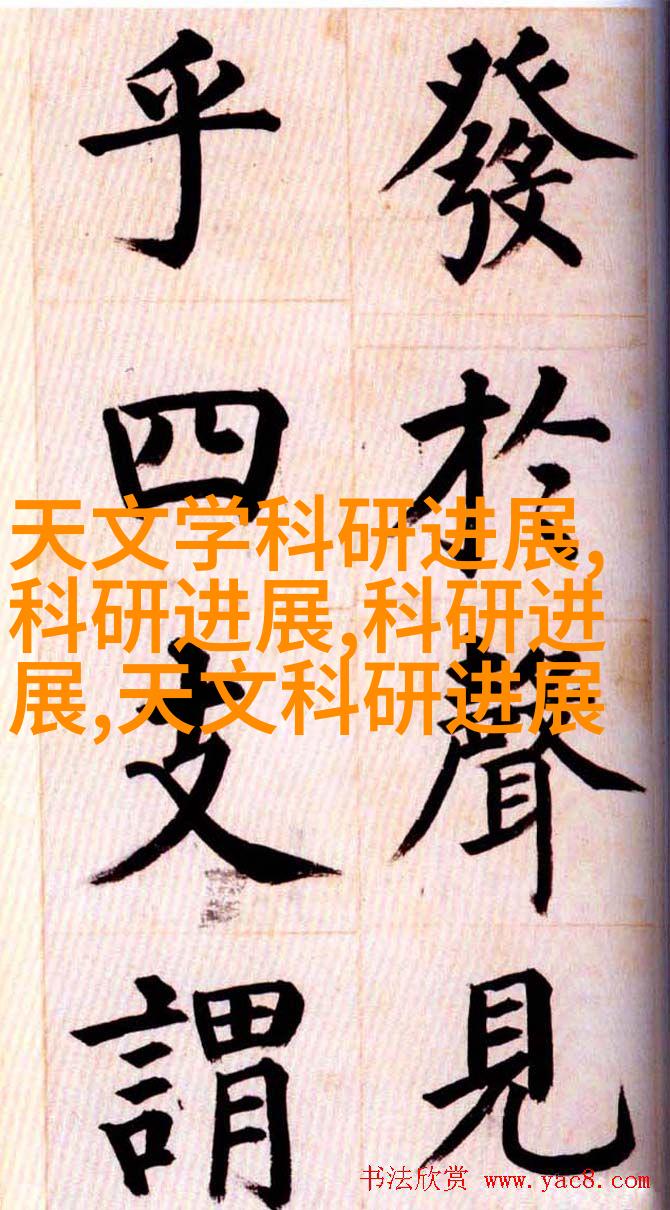 發於聲見
乎四支謂
天文学科研进展,
科研进展,科研进
展,天文科研进展
书法欣赏 www.yac8.com